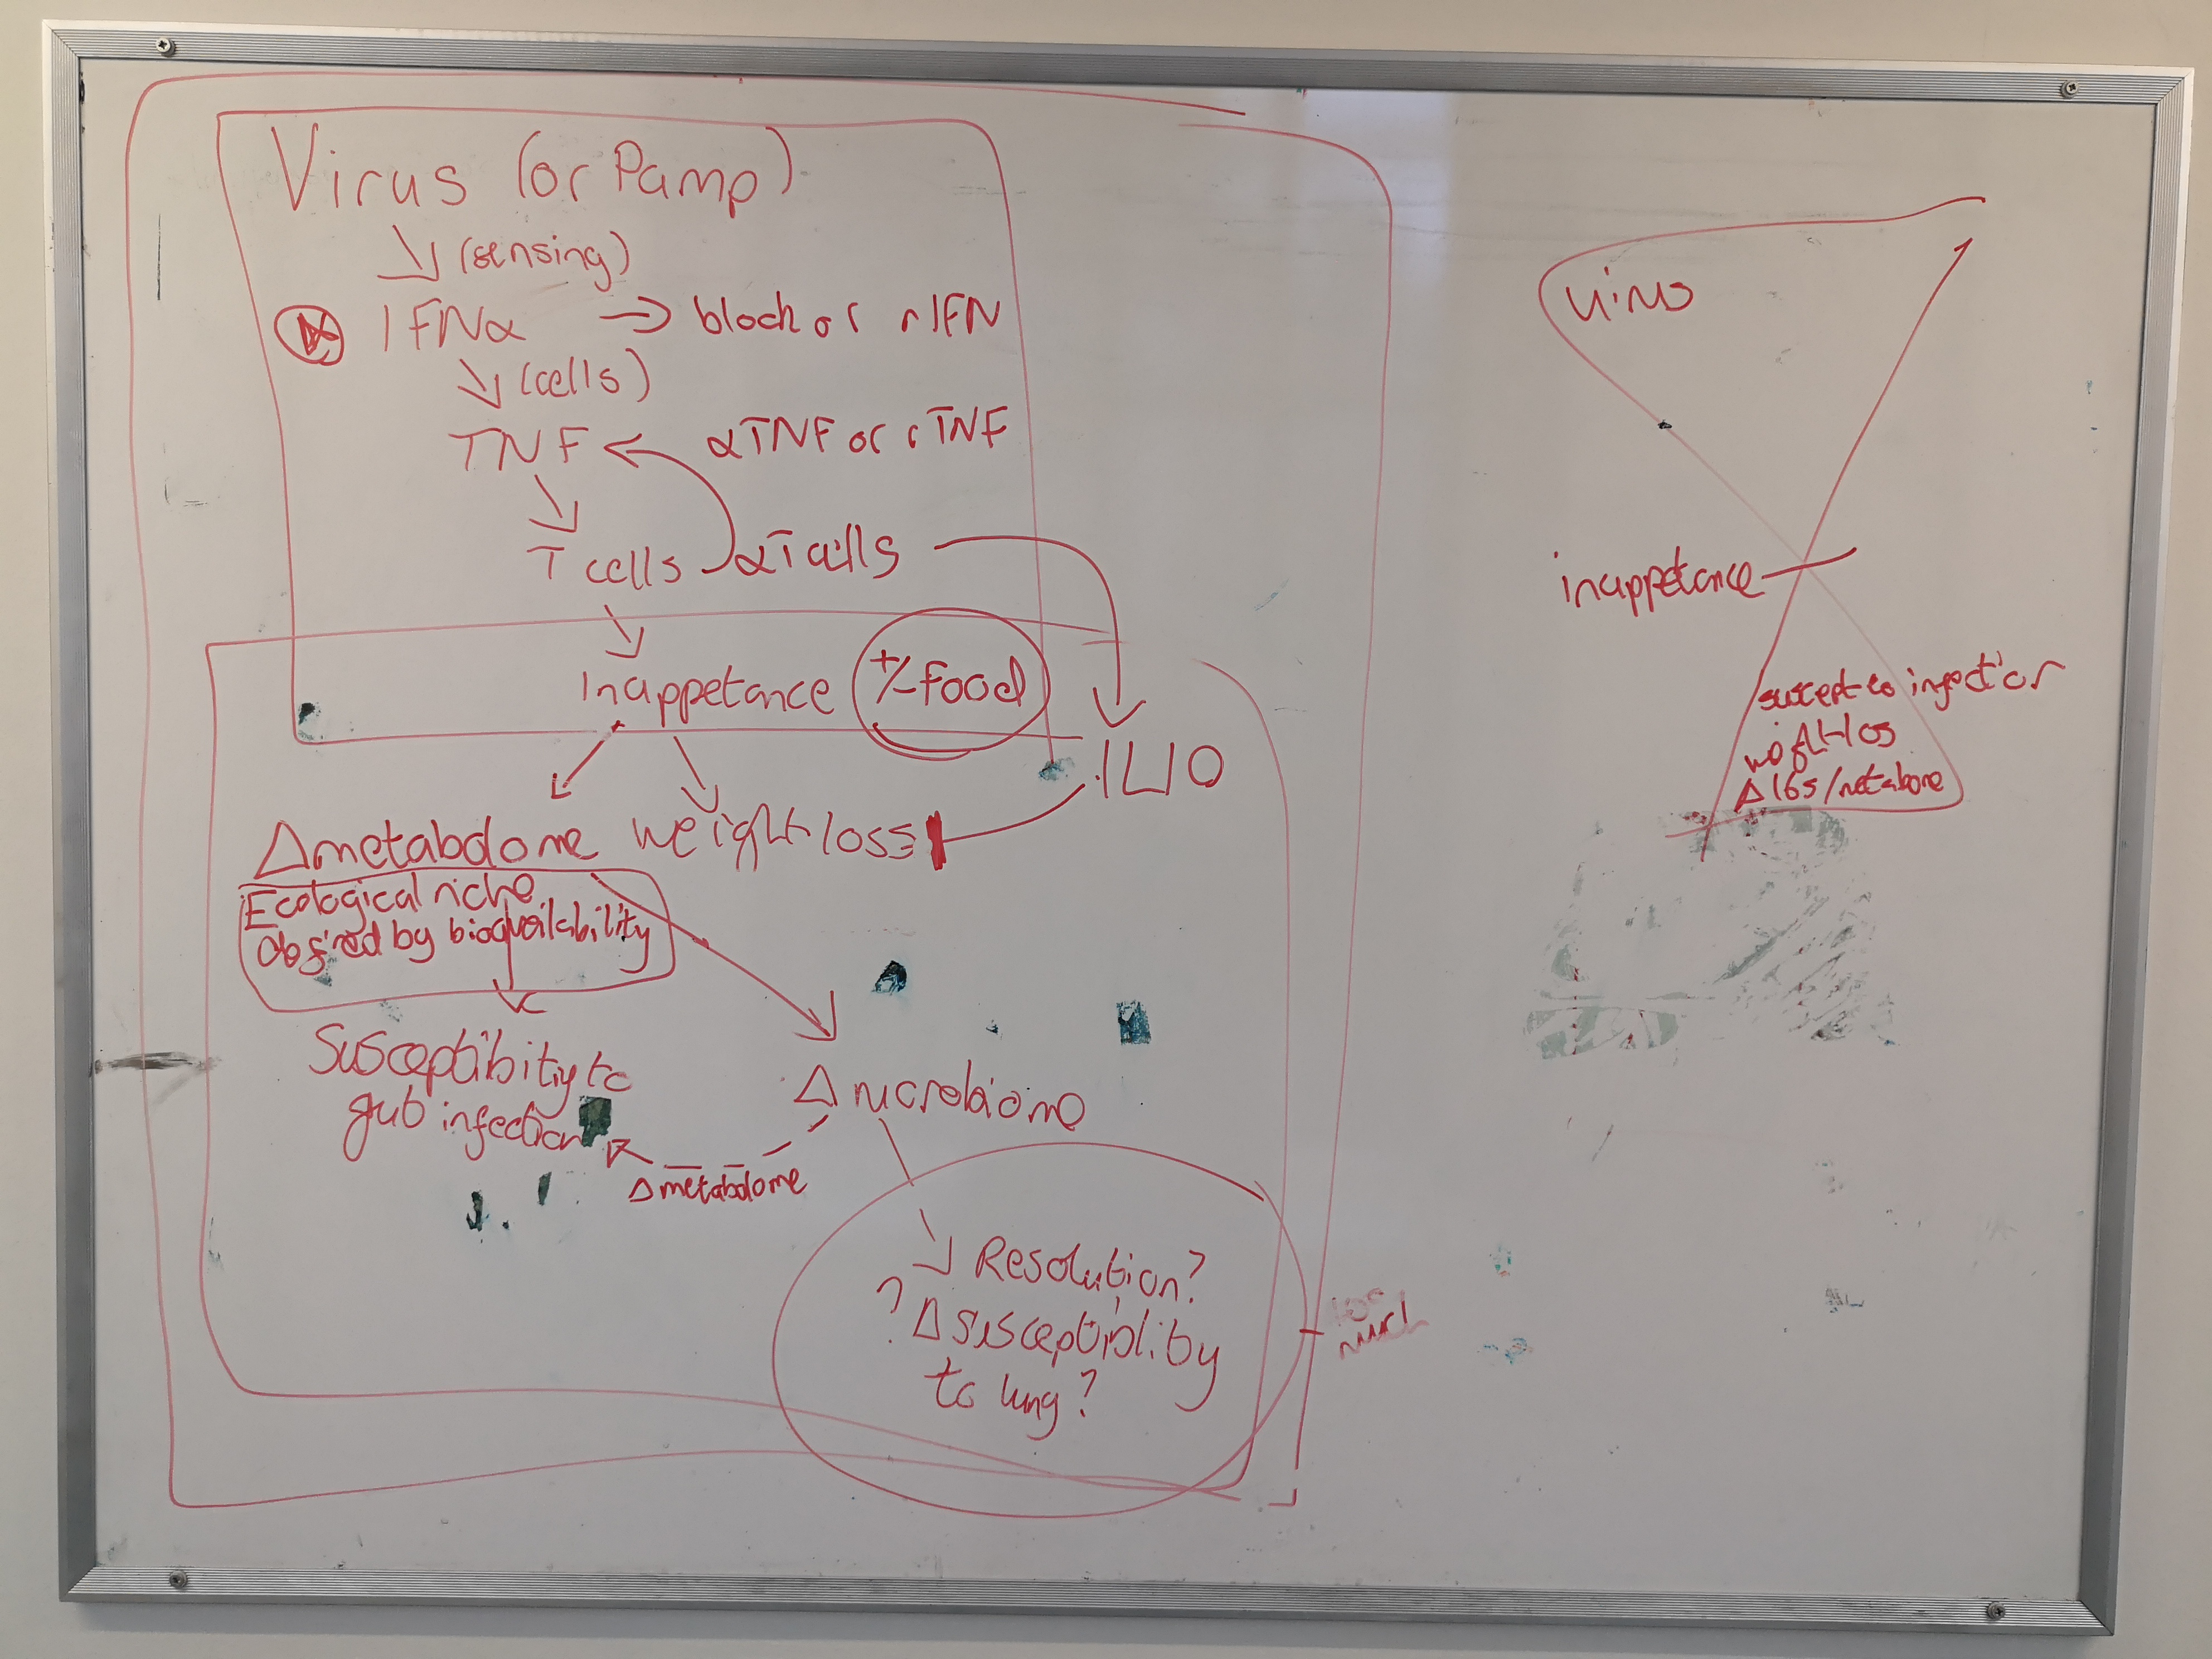 Virus (or Pamp)
(sensing)
IFNα → block or rIFN
(cells)
TNF ← αTNF or rTNF
T cells αT cells
Inappetance +/- Food
IL10
Δmetabolome weight loss
Ecological niche
defined by bioavailability
Susceptibility to
gut infection
Δ microbiome
Δ metabolome
Resolution?
? Δ susceptibility
to lung?
Virus
inappetance
suscept to infection
weight loss
Δ 16s/metabome